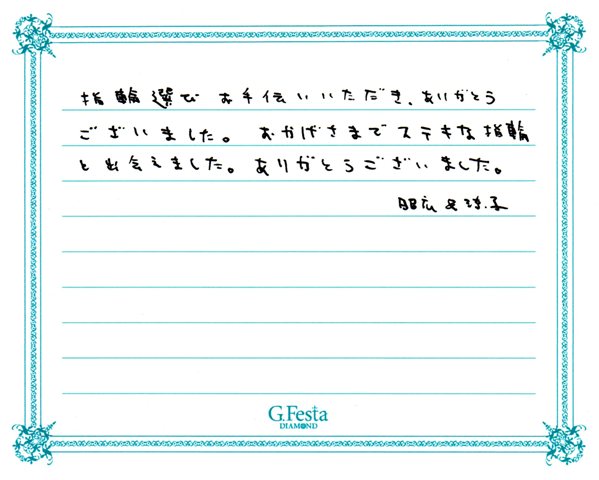 指輪選び お手伝いいただき、ありがとう
ございました。 おかげさまでステキな指輪
と出会えました。ありがとうございました。
G.Festa
DIAMOND